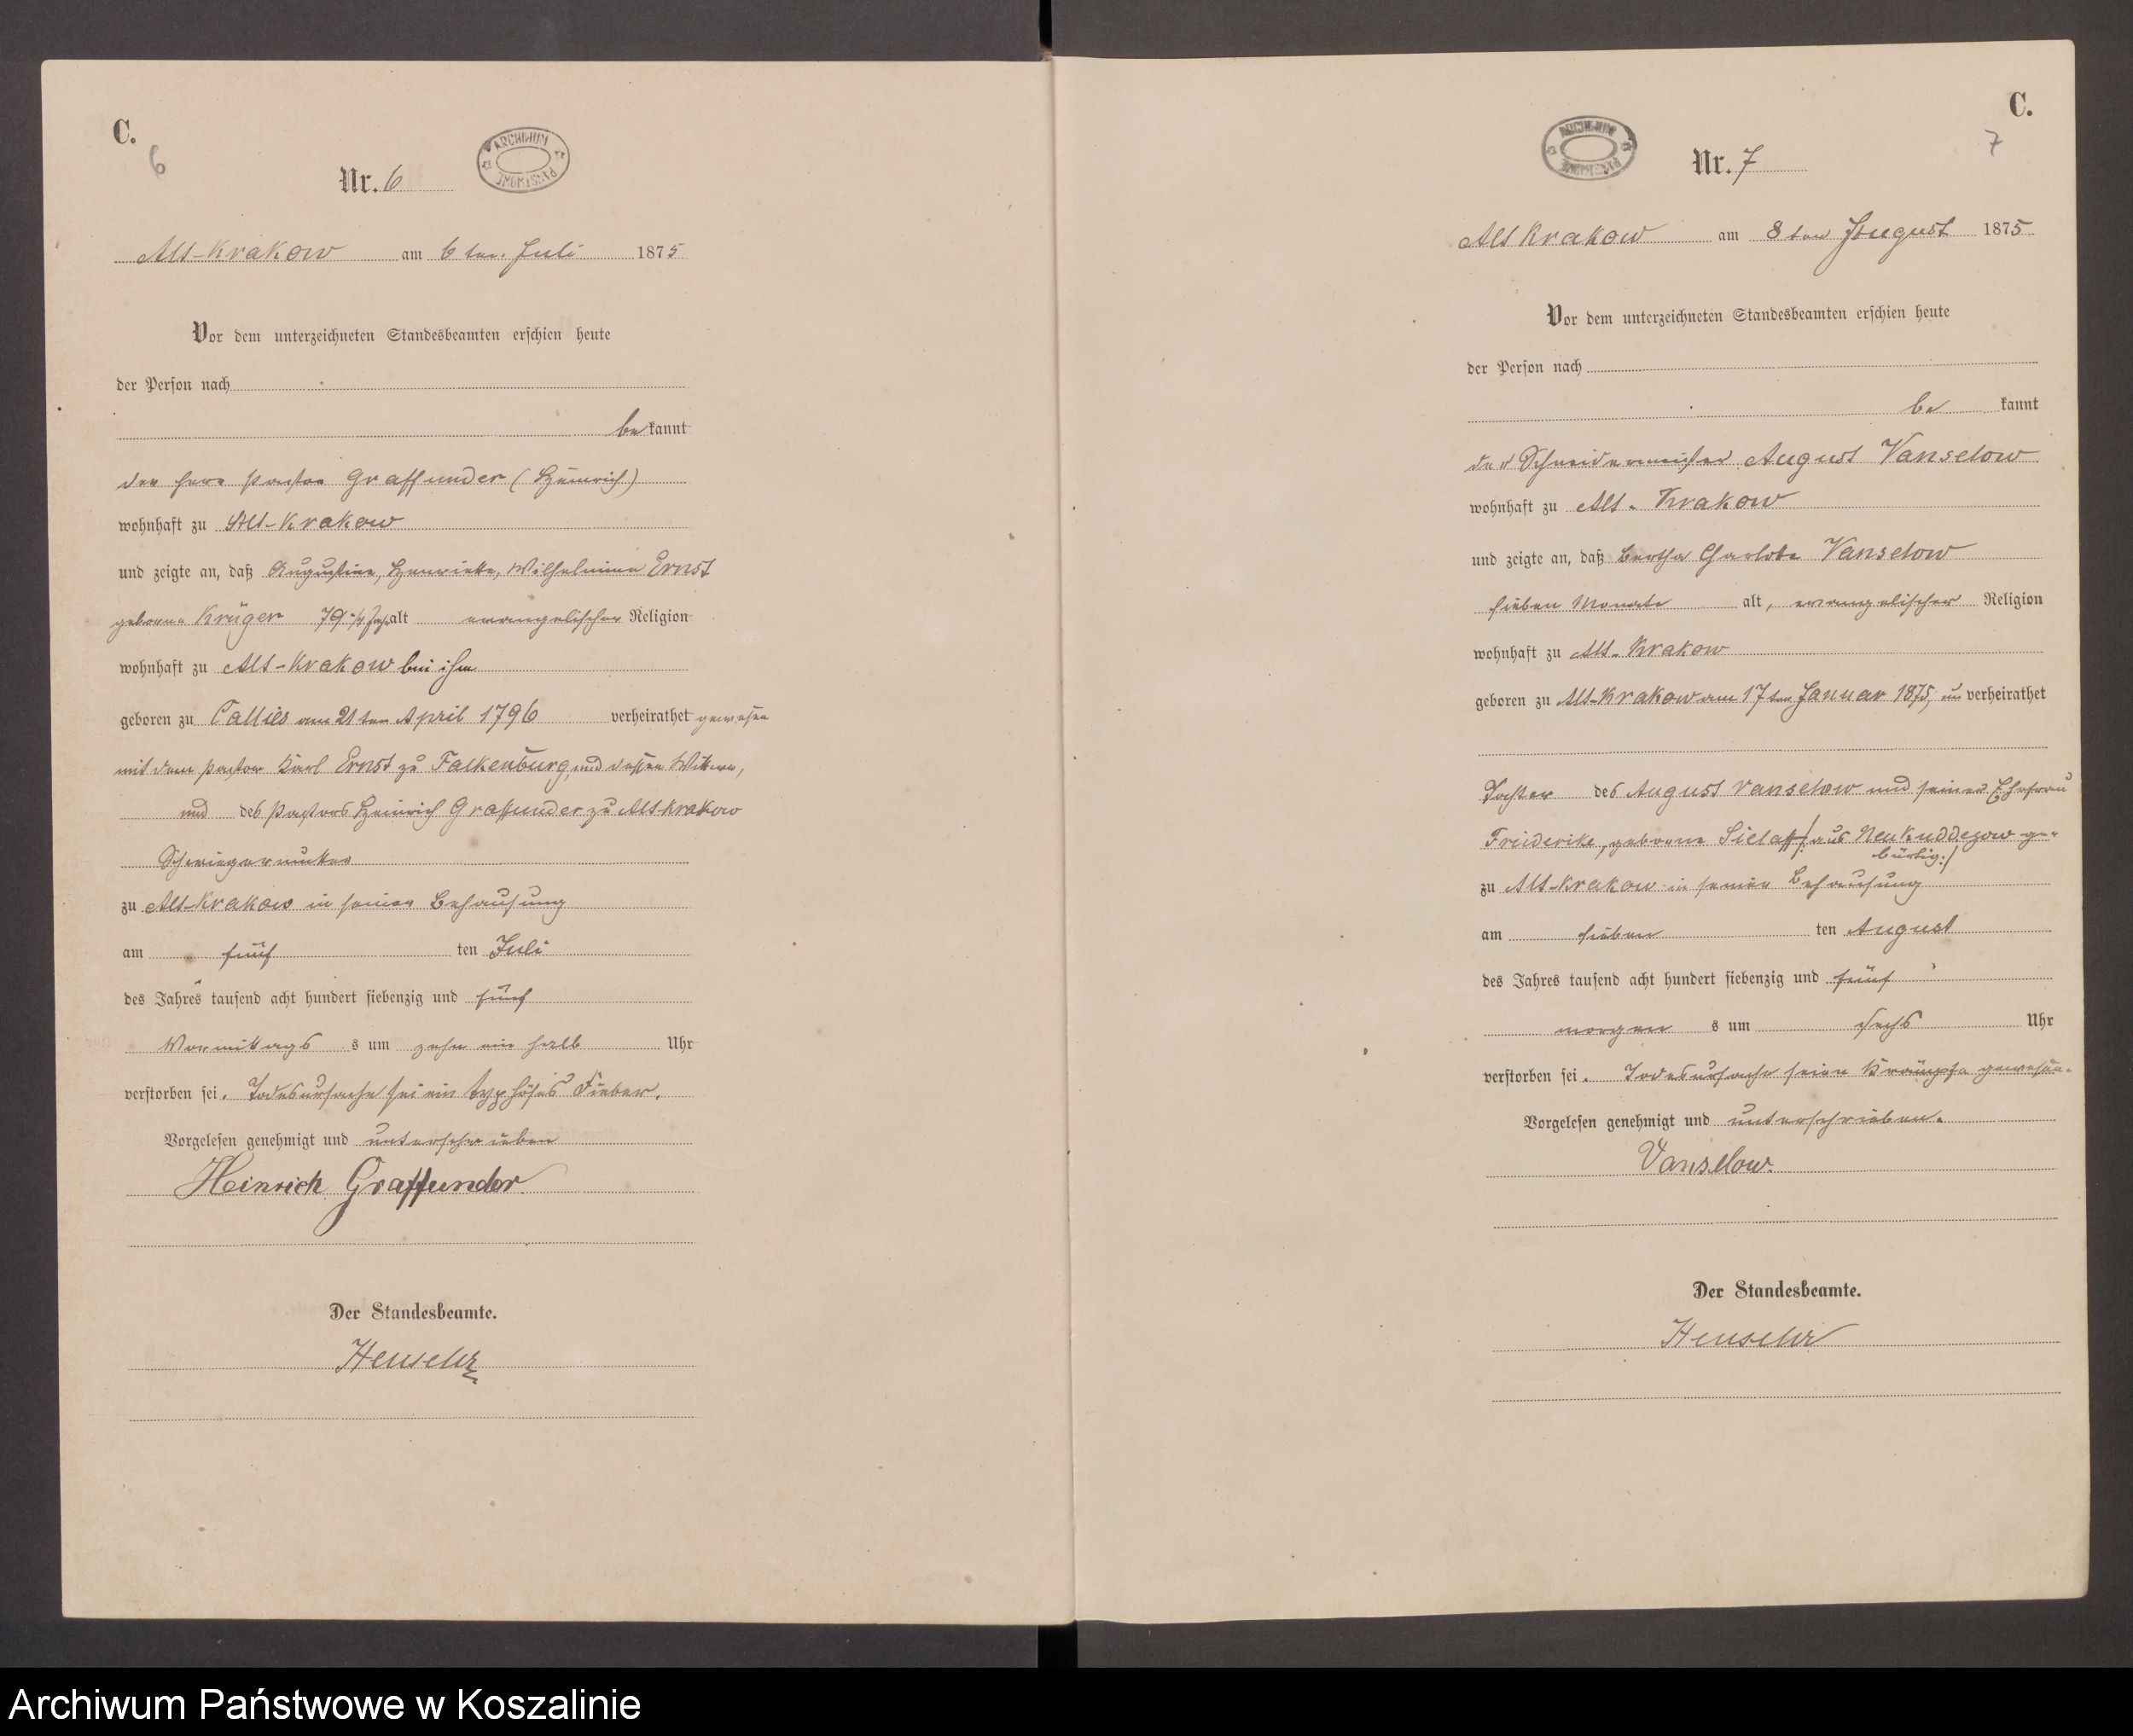 C.
6
ARCHIWUM PAŃSTWOWE
Nr. 6
Alt-Krakow am 6ten Juli 1875
Vor dem unterzeichneten Standesbeamten erschien heute
der Person nach
be kannt
der Herr Pastor Graffunder (Heinrich)
wohnhaft zu Alt-Krakow
und zeigte an, daß Augustine, Henriette, Wilhelmine Ernst
geborene Krüger 79 ¼ Jahr alt evangelischer Religion
wohnhaft zu Alt-Krakow bei ihm
geboren zu Callies am 21ten April 1796 verheirathet gewesen
mit dem Pastor Karl Ernst zu Falkenburg, und dessen Wittwe,
und des Pastors Heinrich Graffunder zu Alt Krakow
Schwiegermutter
zu Alt-Krakow in seiner Behausung
am fünf ten Juli
des Jahres tausend acht hundert siebenzig und fünf
Vormittags s um zehn ein halb Uhr
verstorben sei. Todesursache sei ein typhöses Fieber.
Vorgelesen genehmigt und unterschrieben
Heinrich Graffunder
Der Standesbeamte.
C.
7
ARCHIWUM PAŃSTWOWE
Nr. 7
Alt Krakow am 8ten August 1875
Vor dem unterzeichneten Standesbeamten erschien heute
der Person nach
be kannt
der Schneidermeister August Vanselow
wohnhaft zu Alt-Krakow
und zeigte an, daß Bertha Charlotte Vanselow
sieben Monate alt, evangelischer Religion
wohnhaft zu Alt-Krakow
geboren zu Alt-Krakow am 17ten Januar 1875, un verheirathet
Tochter des August Vanselow und seiner Ehefrau
Friederike, geborene Sielaff /: aus Neu Kuddezow ge-
bürtig :/
zu Alt-Krakow in seiner Behausung
am sieben ten August
des Jahres tausend acht hundert siebenzig und fünf
morgen s um sechs Uhr
verstorben sei. Todesursache seien Krämpfe gewesen.
Vorgelesen genehmigt und unterschrieben.
Vanselow.
Der Standesbeamte.
Archiwum Państwowe w Koszalinie